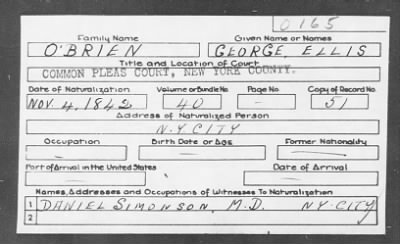 0165
Family Name Given Name or Names
O'BRIEN GEORGE, ELLIS
Title and Location of Court
COMMON PLEAS COURT, NEW YORK COUNTY.
Date of Naturalization Volume or Bundle No Page No Copy of Record No.
NOV. 4, 1842 40 — 51
Address of Naturalized Person
N.Y. CITY
Occupation Birth Date or Age Former Nationality
— — —
Port of Arrival in the United States Date of Arrival
— —
Names, Addresses and Occupations of Witnesses To Naturalization
1 DANIEL SIMONSON, M.D. N.Y. CITY
2